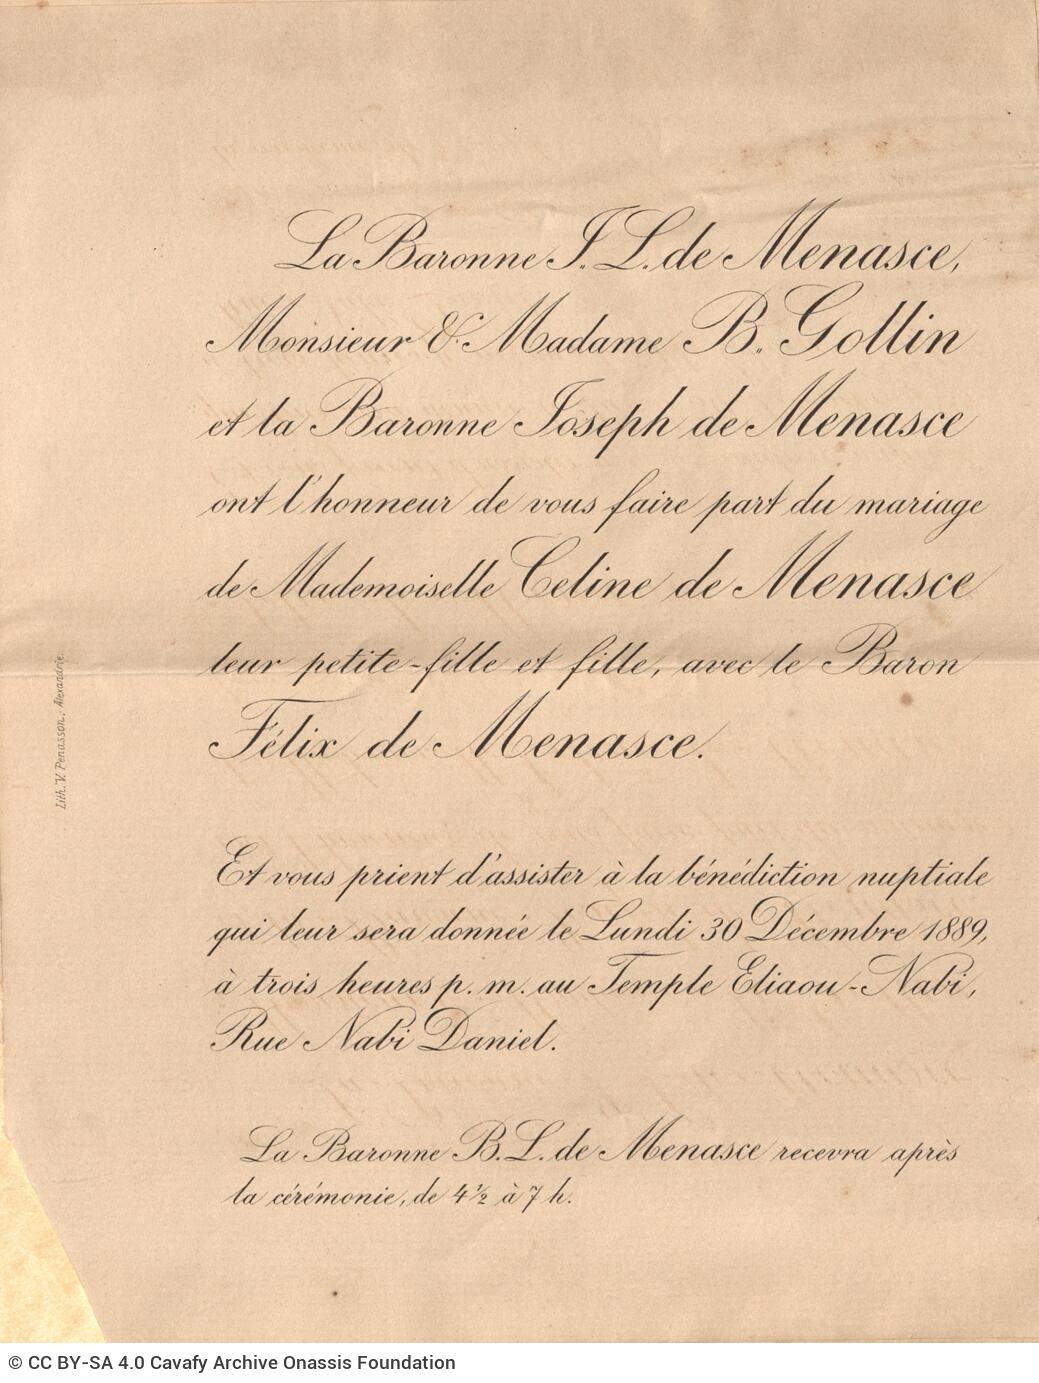 La Baronne J. L. de Menasce,
Monsieur & Madame B. Gollin
et la Baronne Joseph de Menasce
ont l'honneur de vous faire part du mariage
de Mademoiselle Celine de Menasce
leur petite-fille et fille, avec le Baron
Félix de Menasce.
Et vous prient d'assister à la bénédiction nuptiale
qui leur sera donnée le Lundi 30 Décembre 1889,
à trois heures p. m. au Temple Eliaou-Nabi,
Rue Nabi Daniel.
La Baronne B. L. de Menasce recevra après
la cérémonie, de 4 ½ à 7 h.
Lith. V. Penasson, Alexandrie.
© CC BY-SA 4.0 Cavafy Archive Onassis Foundation